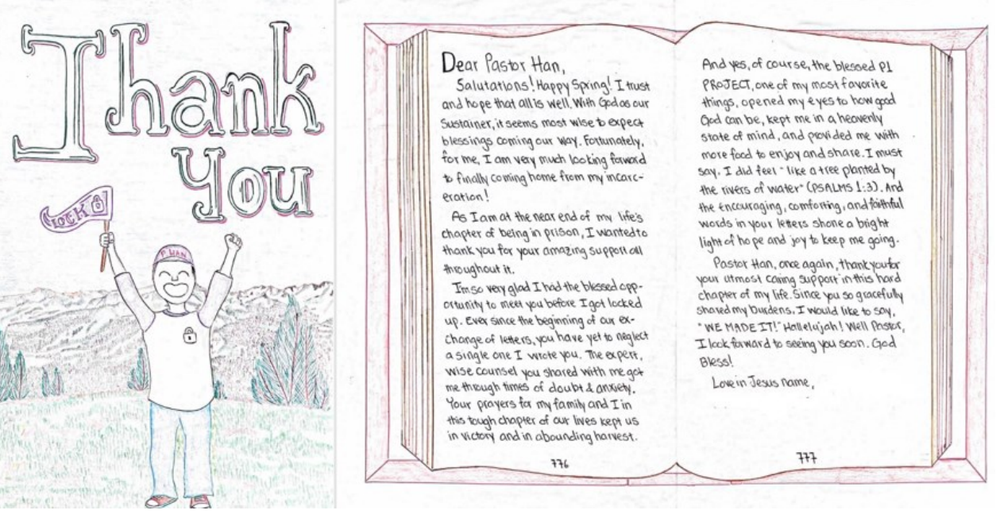 Thank
You
LOCK
P. HAN
Dear Pastor Han,
Salutations! Happy Spring! I trust
and hope that all is well. With God as our
Sustainer, it seems most wise to expect
blessings coming our way. Fortunately,
for me, I am very much looking forward
to finally coming home from my incarc-
eration!
As I am at the near end of my life's
chapter of being in prison, I wanted to
thank you for your amazing support all
throughout it.
I'm so very glad I had the blessed opp-
ortunity to meet you before I got locked
up. Ever since the beginning of our ex-
change of letters, you have yet to neglect
a single one I wrote you. The expert,
wise counsel you shared with me got
me through times of doubt & anxiety.
Your prayers for my family and I in
this tough chapter of our lives kept us
in victory and in abounding harvest.
776
And yes, of course, the blessed P1
PROJECT, one of my most favorite
things, opened my eyes to how good
God can be, kept me in a heavenly
state of mind, and provided me with
more food to enjoy and share. I must
say, I did feel "like a tree planted by
the rivers of water" (PSALMS 1:3). And
the encouraging, comforting, and faithful
words in your letters shone a bright
light of hope and joy to keep me going.
Pastor Han, once again, thank you for
your utmost caring support in this hard
chapter of my life. Since you so gracefully
shared my burdens, I would like to say,
"WE MADE IT!" Hallelujah! Well Pastor,
I look forward to seeing you soon. God
Bless!
Love in Jesus name,
777